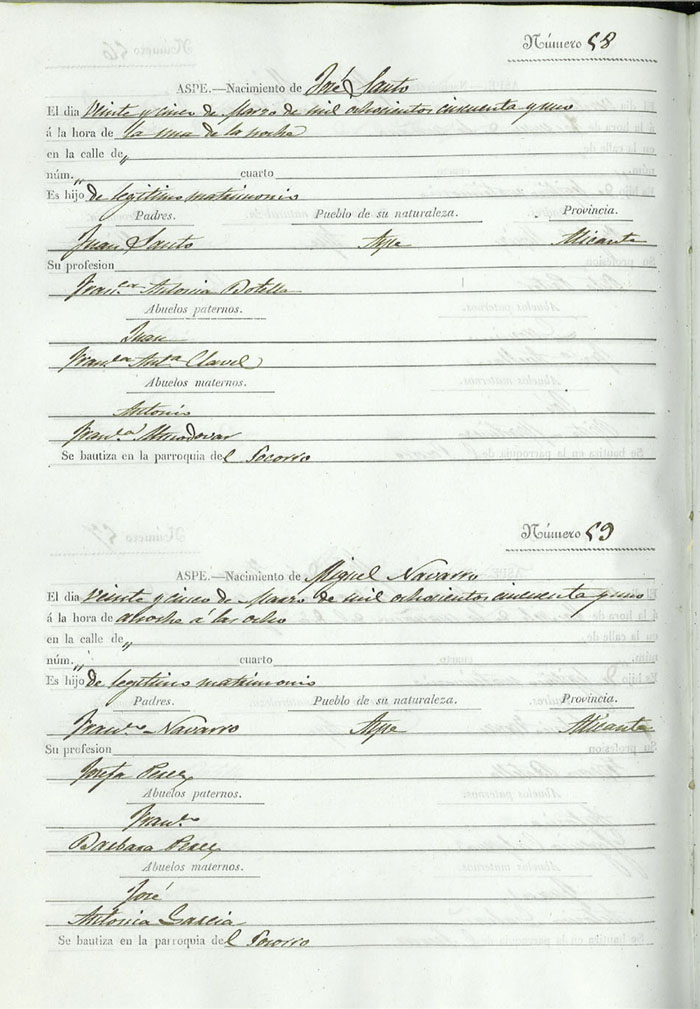 Número 58
ASPE.—Nacimiento de José Santo
El dia veinte y cinco de Marzo de mil ochocientos cincuenta y uno
á la hora de la una de la noche
en la calle de „
núm. „ cuarto
Es hijo de legitimo matrimonio
Padres. Pueblo de su naturaleza. Provincia.
Juan Santo Aspe Alicante
Su profesion
Fran.ca Antonia Botella
Abuelos paternos.
Juan
Fran.ca Ant.a Clavel
Abuelos maternos.
Antonio
Fran.ca Almodovar
Se bautiza en la parroquia del Socorro
Número 59
ASPE.—Nacimiento de Miguel Navarro
El dia veinte y cinco de Marzo de mil ochocientos cincuenta y uno
á la hora de anoche á las ocho
en la calle de „
núm. „ cuarto
Es hijo de legitimo matrimonio
Padres. Pueblo de su naturaleza. Provincia.
Fran.co Navarro Aspe Alicante
Su profesion
Josefa Perez
Abuelos paternos.
Fran.co
Barbara Perez
Abuelos maternos.
José
Antonia Garcia
Se bautiza en la parroquia del Socorro